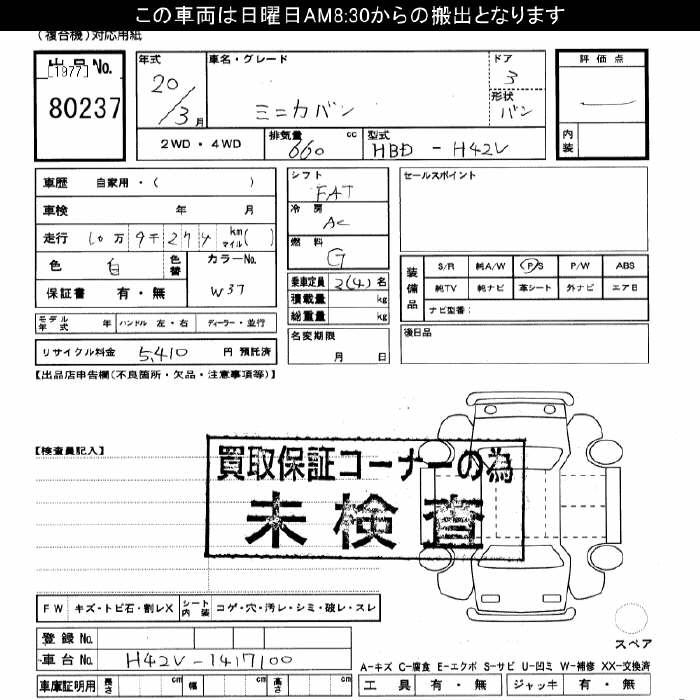 この車両は日曜日AM8:30からの搬出となります
(複合機)対応用紙
出品No.
[1977]
80237
年式
20/3月
車名・グレード
ミニカバン
ドア
3
形状
バン
評価点
内装
2WD・4WD
排気量
660 cc
型式
HBD - H42V
車歴 自家用・( )
車検 年 月
走行 10万9千274 km マイル( )
色 白 色替
カラーNo.
W37
保証書 有・無
シフト
FAT
冷房
AC
燃料
G
乗車定員 2(4)名
積載量 kg
総重量 kg
名変期限
月 日
セールスポイント
装備品
S/R 純A/W P/S P/W ABS
純TV 純ナビ 革シート 外ナビ エアB
ナビ型番:
後日品
モデル年式 年 ハンドル 左・右 ディーラー・並行
リサイクル料金 5,410 円 預託済
【出品店申告欄(不良箇所・欠品・注意事項等)】
【検査員記入】
買取保証コーナーの為
未検査
FW キズ・トビ石・割レX シート内装 コゲ・穴・汚レ・シミ・破レ・スレ
登録No.
車台No. H42V-1417100
車庫証明用 長さ cm 幅 cm 高さ cm
スペア
A-キズ C-腐食 E-エクボ S-サビ U-凹ミ W-補修 XX-交換済
工具 有・無 ジャッキ 有・無